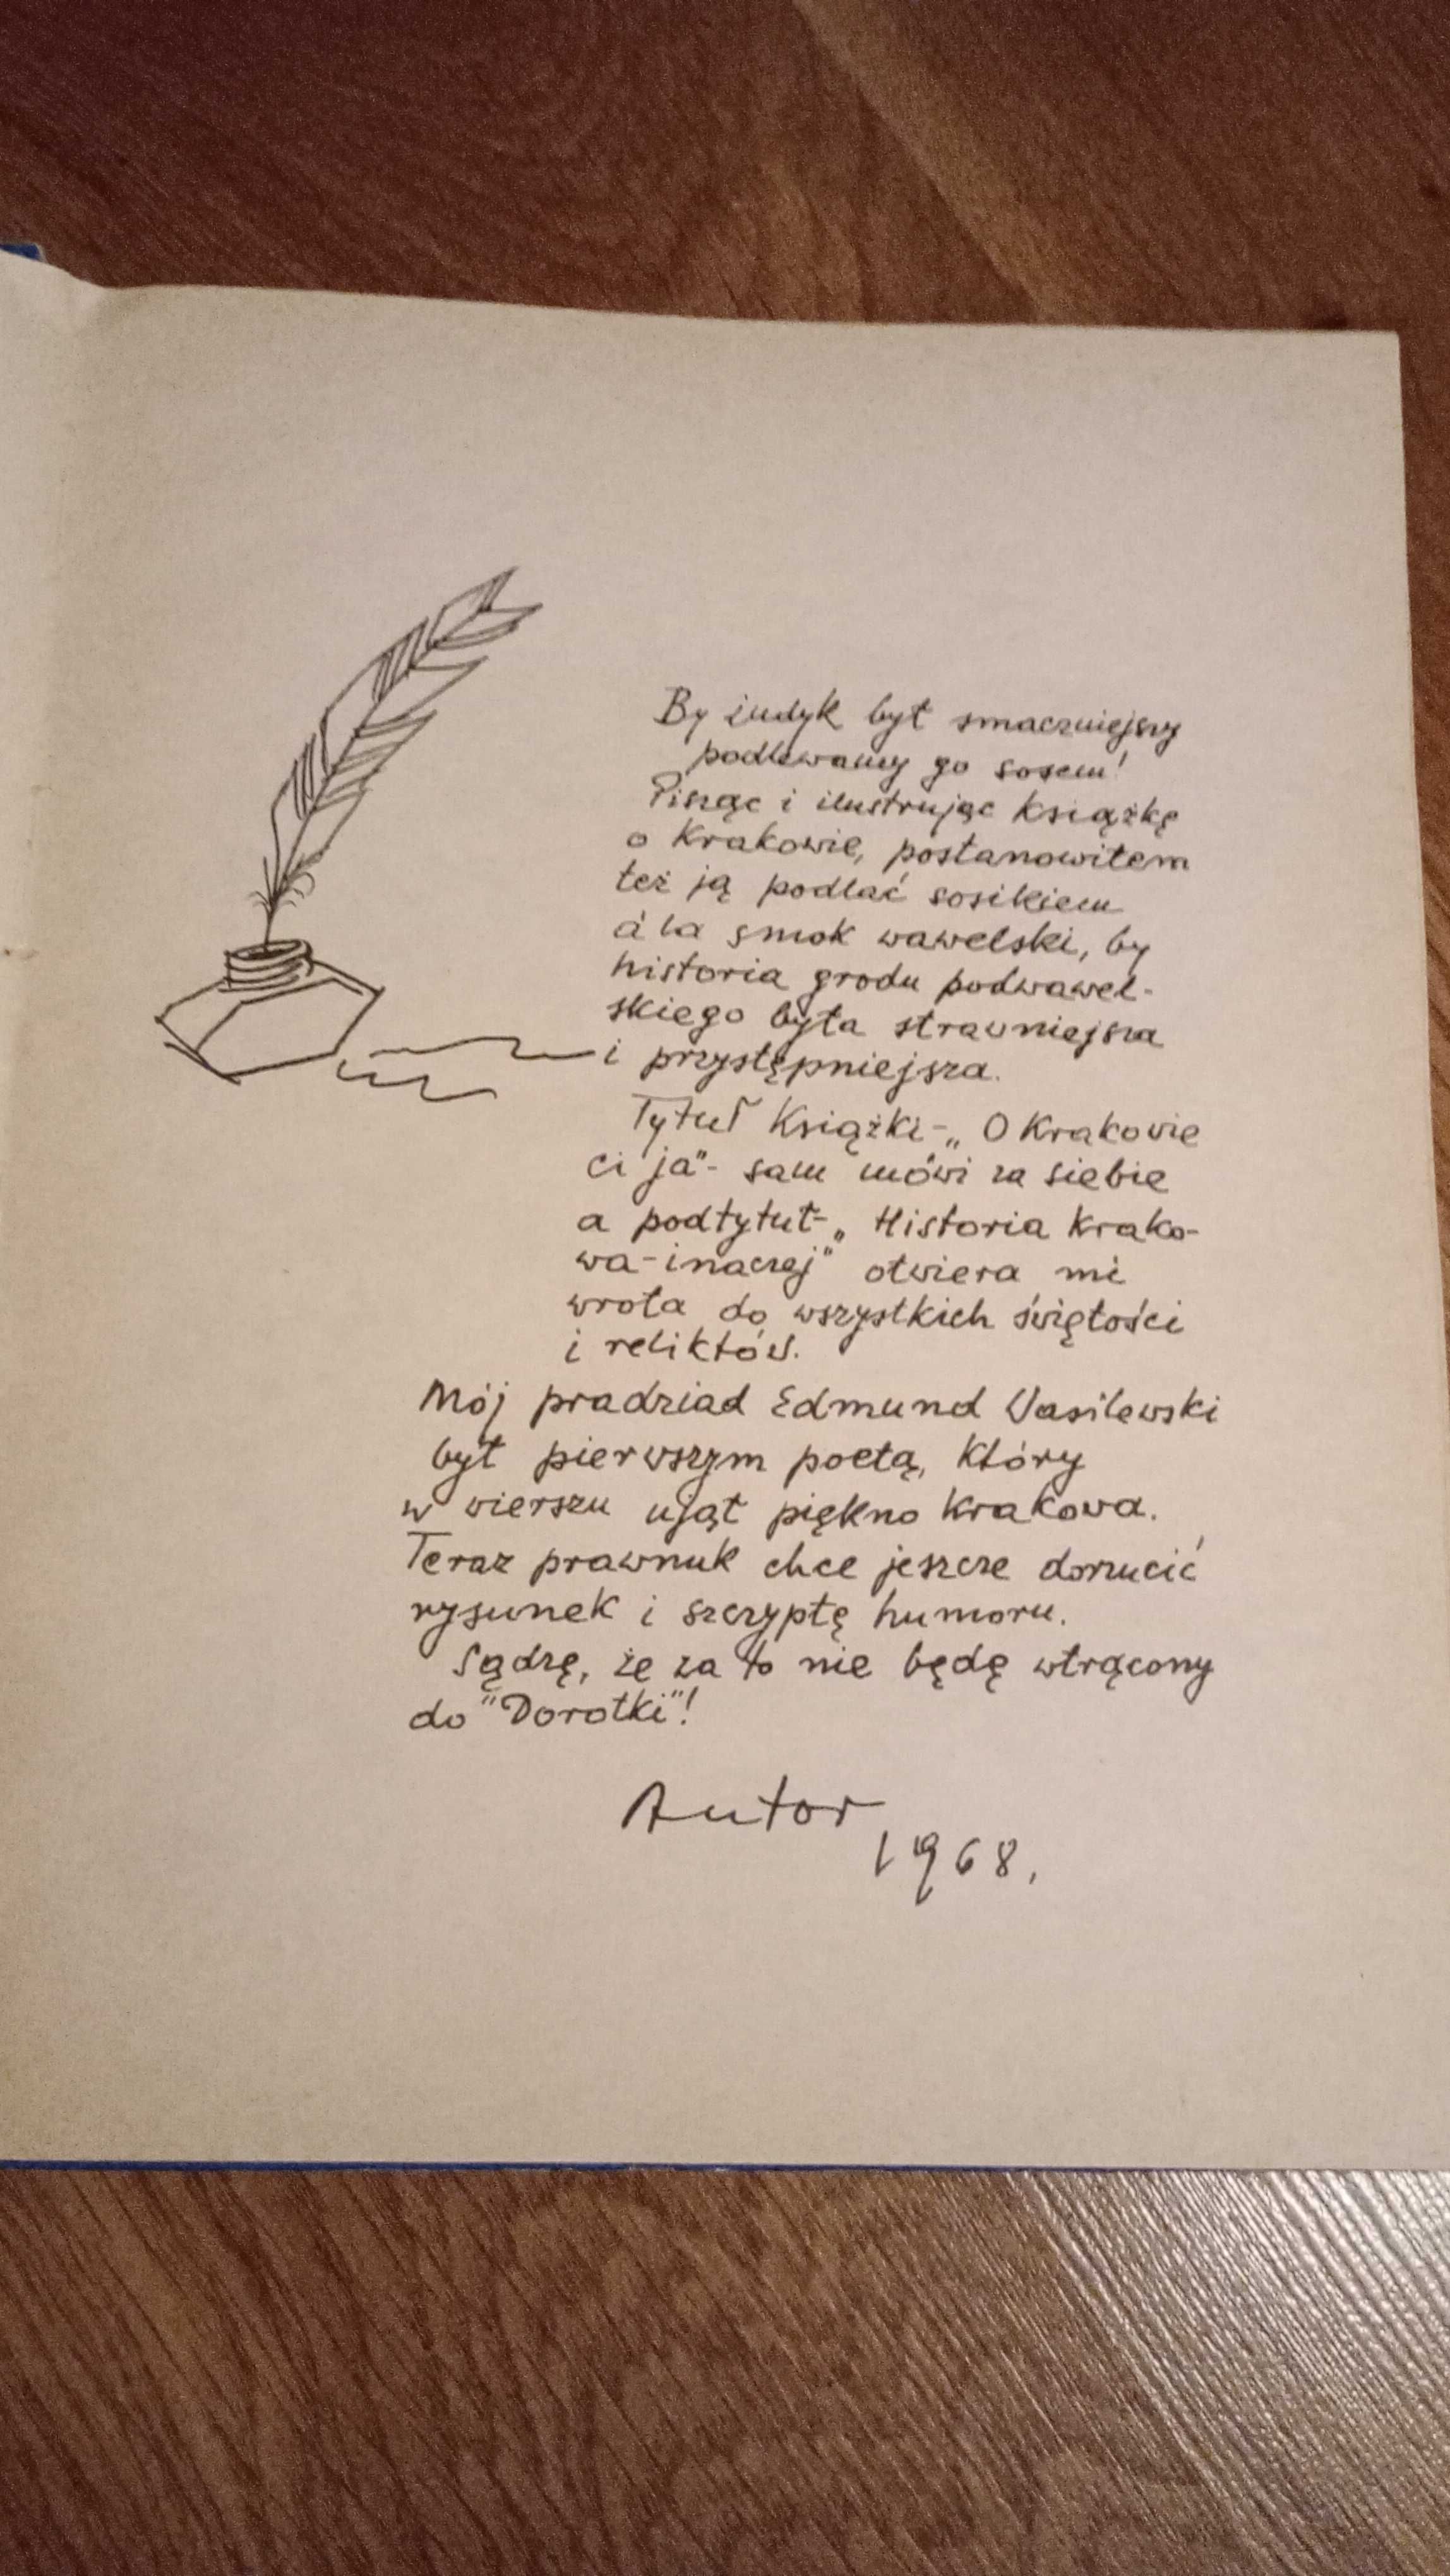 By indyk był smaczniejszy
podlewamy go sosem!
Pisząc i ilustrując książkę
o Krakowie, postanowiłem
też ją podlać sosikiem
á la smok wawelski, by
historia grodu podwawel-
skiego była strawniejsza
i przystępniejsza.
Tytuł książki-„O Krakowie
ci ja"- sam mówi za siebie
a podtytuł-„Historia Krako-
wa-inaczej" otwiera mi
wrota do wszystkich świętości
i reliktów.
Mój pradziad Edmund Wasilewski
był pierwszym poetą, który
w wierszu ujął piękno Krakowa.
Teraz prawnuk chce jeszcze dorzucić
rysunek i szczyptę humoru.
Sądzę, że za to nie będę wtrącony
do "Dorotki"!
Autor
1968.